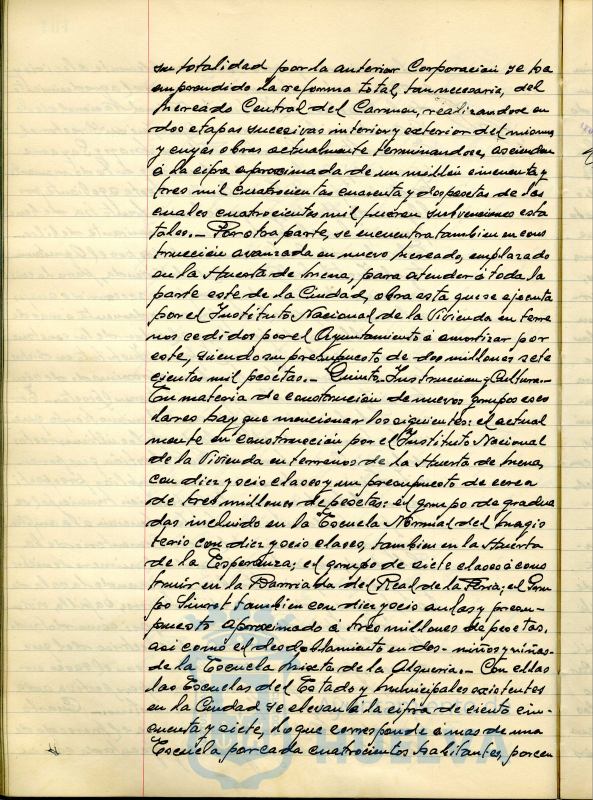 su totalidad por la anterior Corporación se ha
emprendido la reforma total, tan necesaria, del
Mercado Central del Carmen, realizandose en
dos etapas sucesivas interior y exterior del mismo
y cuyas obras actualmente terminandose, ascienden
á la cifra aproximada de un millón cincuenta y
tres mil cuatrocientas cuarenta y dos pesetas de las
cuales cuatrocientos mil fueron subvenciones esta
tales.- Por otra parte, se encuentra tambien en cons
trucción avanzada en nuevo Mercado, emplazado
en la Huerta de Mena, para atender á toda la
parte este de la Ciudad, obra esta que se ejecuta
por el Instituto Nacional de la Vivienda en terre
nos cedidos por el Ayuntamiento á amortizar por
este, siendo su presupuesto de dos millones sete
cientas mil pesetas.- Quinto.- Instruccion y Cultura.-
En materia de construcción de nuevos grupos esco
lares hay que mencionar los siguientes: el actual
mente en construcción por el Instituto Nacional
de la Vivienda en terrenos de la Huerta de Mena,
con diez y ocio clases y un presupuesto de cerca
de tres millones de pesetas: el grupo de gradua
das incluido en la Escuela Normal del Magis
terio con diez y ocio clases, tambien en la Huerta
de la Esperanza; el grupo de siete clases á cons
truir en la Barriada del Real de la Feria; el Gru
po Siurot tambien con diez y ocio aulas y presu-
puesto aproximado á tres millones de pesetas,
asi como el desdoblamiento en dos- niños y niñas-
de la Escuela Mixta de la Alqueria.- Con ellas
las Escuelas del Estado y Municipales existentes
en la Ciudad se elevan á la cifra de ciento cin-
cuenta y siete, lo que corresponde á mas de una
Escuela por cada cuatrocientos habitantes, por cu